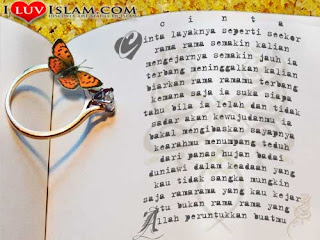 I LUV ISLAM.COM
DISCOVER THE BEAUTY OF ISLAM
cinta
Cinta layaknya seperti seekor
rama rama semakin kalian
mengejarnya semakin jauh ia
terbang meninggalkan kalian
biarkan rama ramamu terbang
kemana saja ia suka siapa
tahu bila ia lelah dan tidak
sadar akan kewujudanmu ia
bakal mengibaskan sayapnya
kearahmu menumpang teduh
dari panas hujan badai
duniawi dalam keadaan yang
kau tidak sangka mungkin
saja ramarama yang kau kejar
itu bukan rama rama yang
Allah peruntukkan buatmu